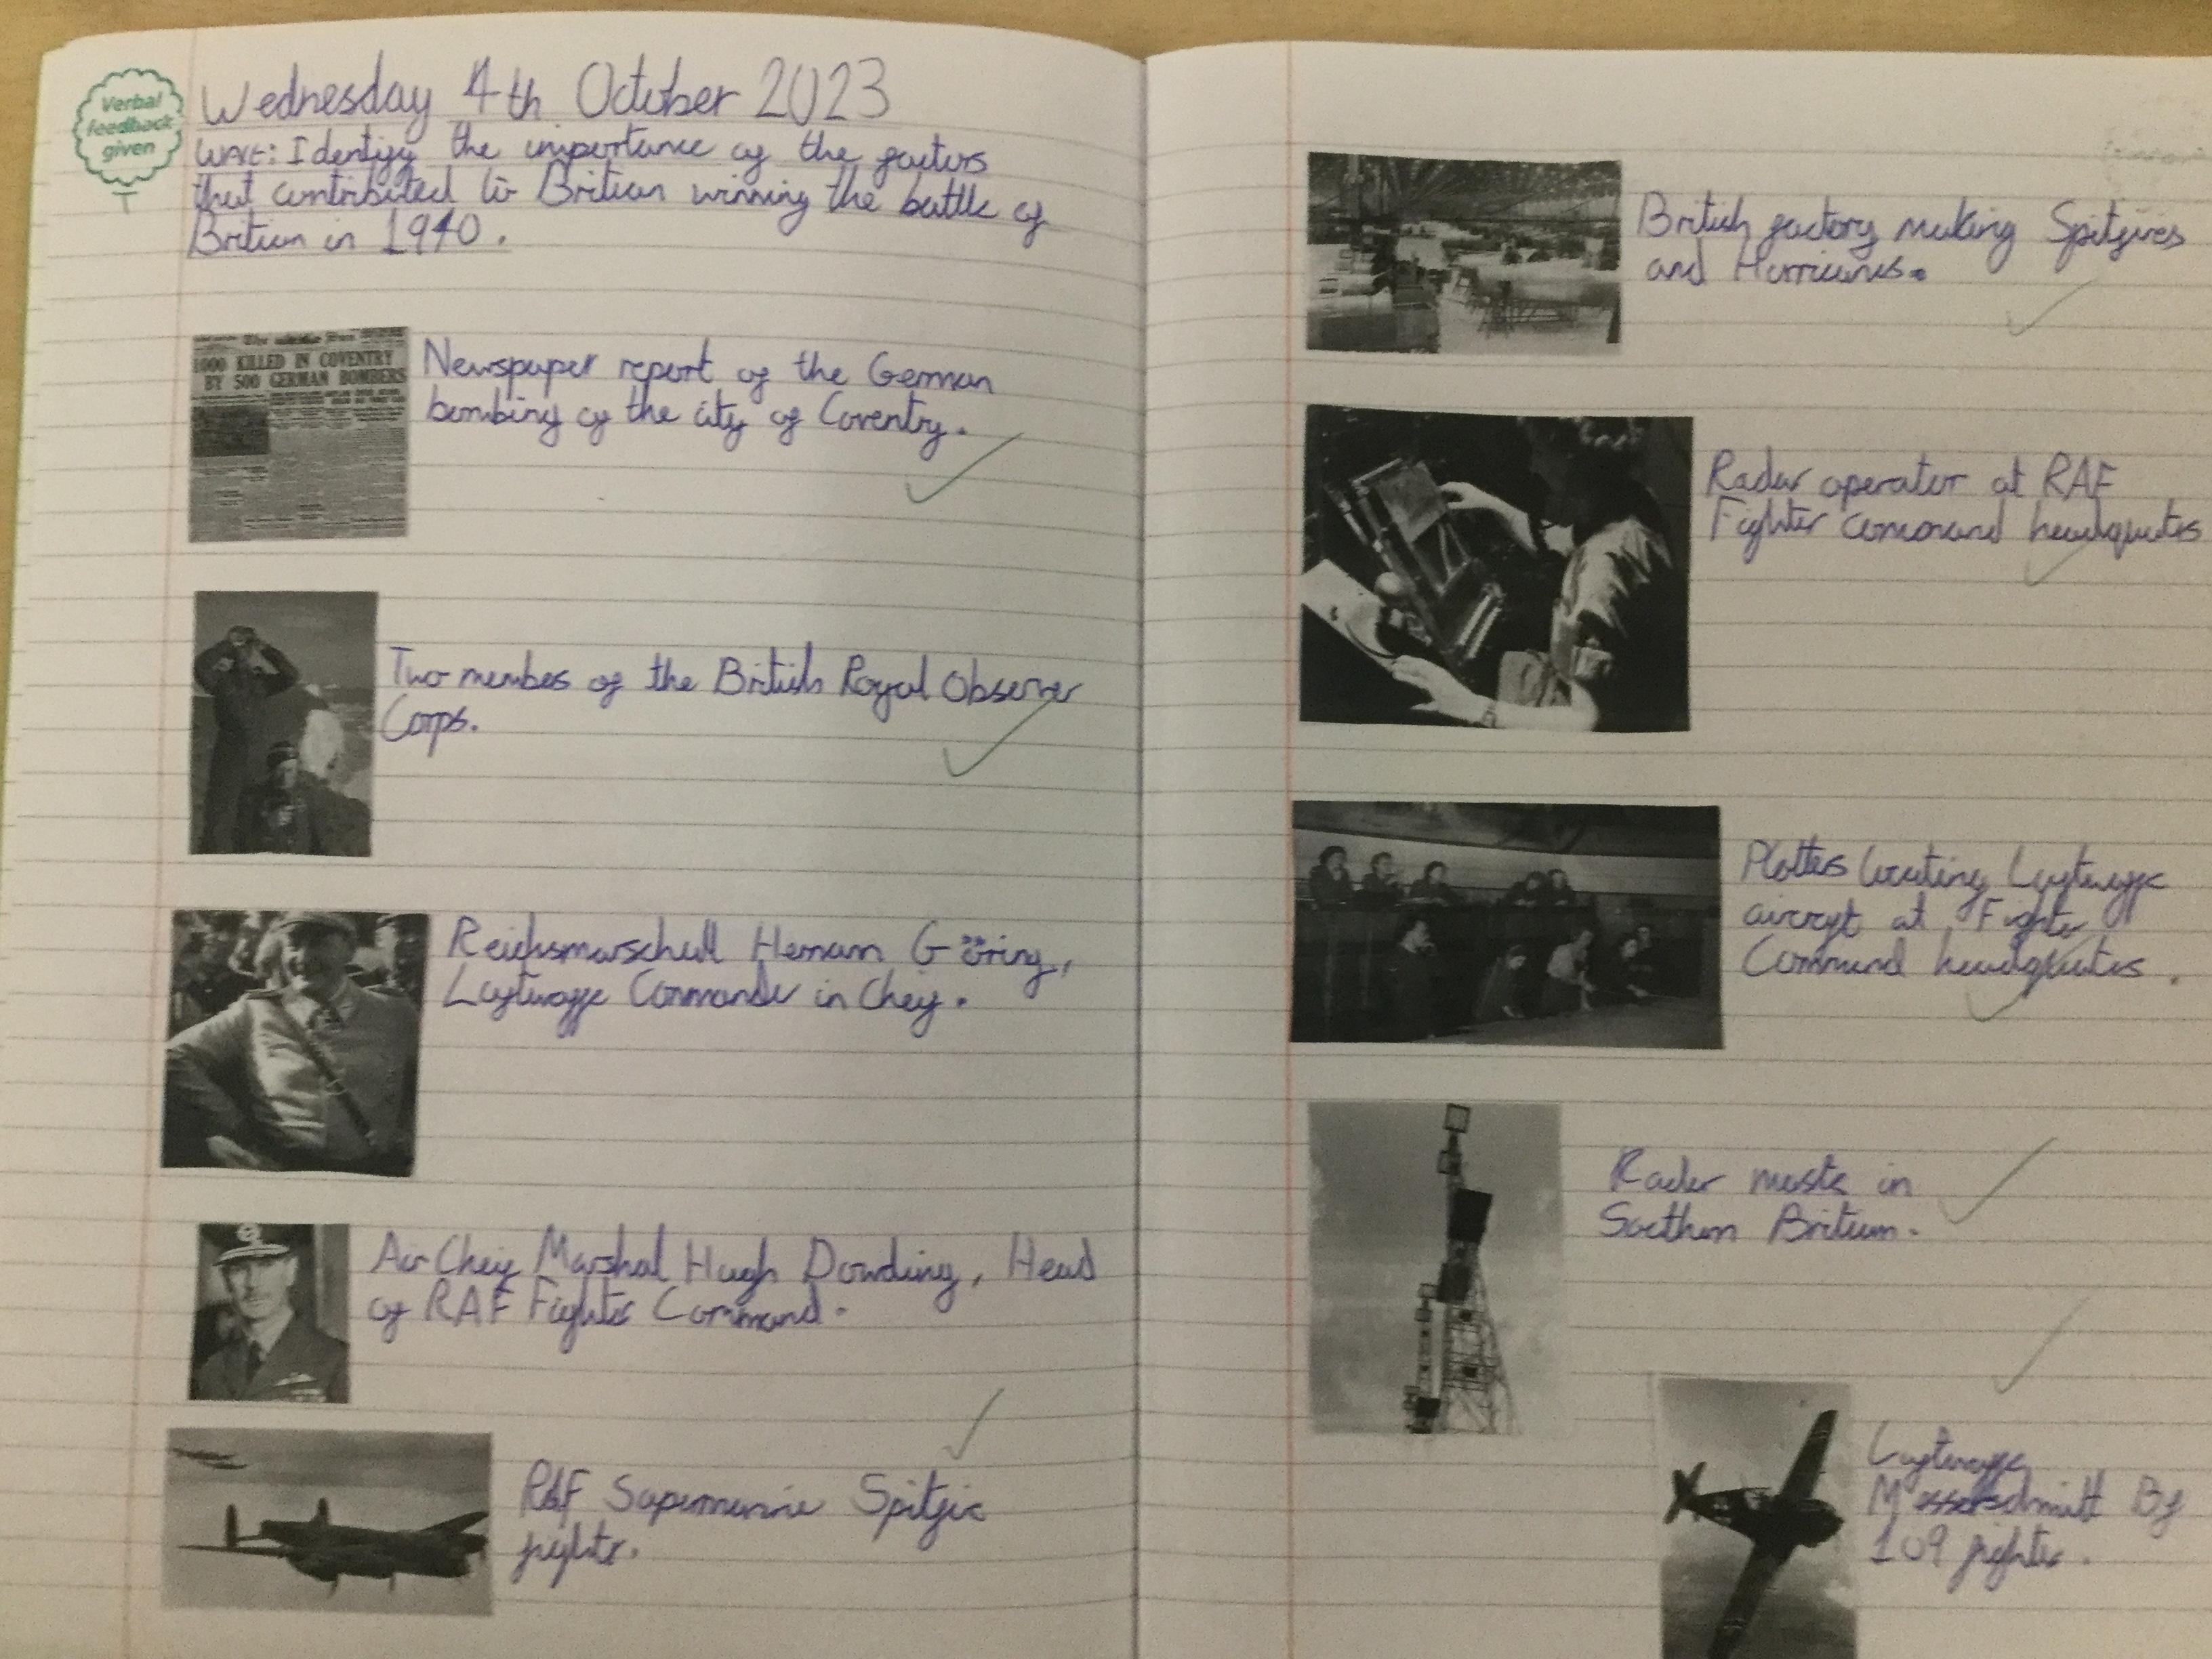 Verbal
feedback
given
T
Wednesday 4th October 2023
WALT: Identify the importance of the factors
that contributed to Britian winning the battle of
Britian in 1940.
1000 KILLED IN COVENTRY
BY 500 GERMAN BOMBERS
Newspaper report of the German
bombing of the city of Coventry.
Two membes of the British Royal Observer
Corps.
Reichsmarschall Hermann Göring,
Luftwaffe Commander in Chief.
Air Chief Marshal Hugh Dowding, Head
of RAF Fighter Command.
RAF Supermarine Spitfire
fighter.
British factory making Spitfires
and Hurricanes.
Radar operator at RAF
Fighter command headquates
Plotters locating Luftwaffe
aircraft at Fighter
Command headquates.
Rader masts in
Southern Britian.
Luftwaffe
Messerschmitt Bf
109 fighter.